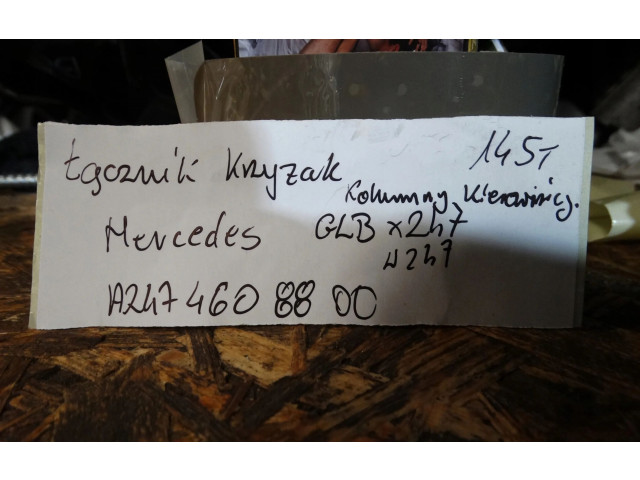 Łącznik Krzyżak 1451
Kolumny Kierowniczj.
Mercedes GLB x247
W247
A247 460 88 00